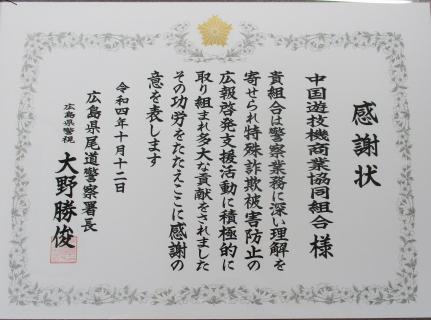 感謝状
中国遊技機商業協同組合様
貴組合は警察業務に深い理解を
寄せられ特殊詐欺被害防止の
広報啓発支援活動に積極的に
取り組まれ多大な貢献をされました
その功労をたたえここに感謝の
意を表します
令和四年十月十二日
広島県尾道警察署長
広島県警視 大野勝俊